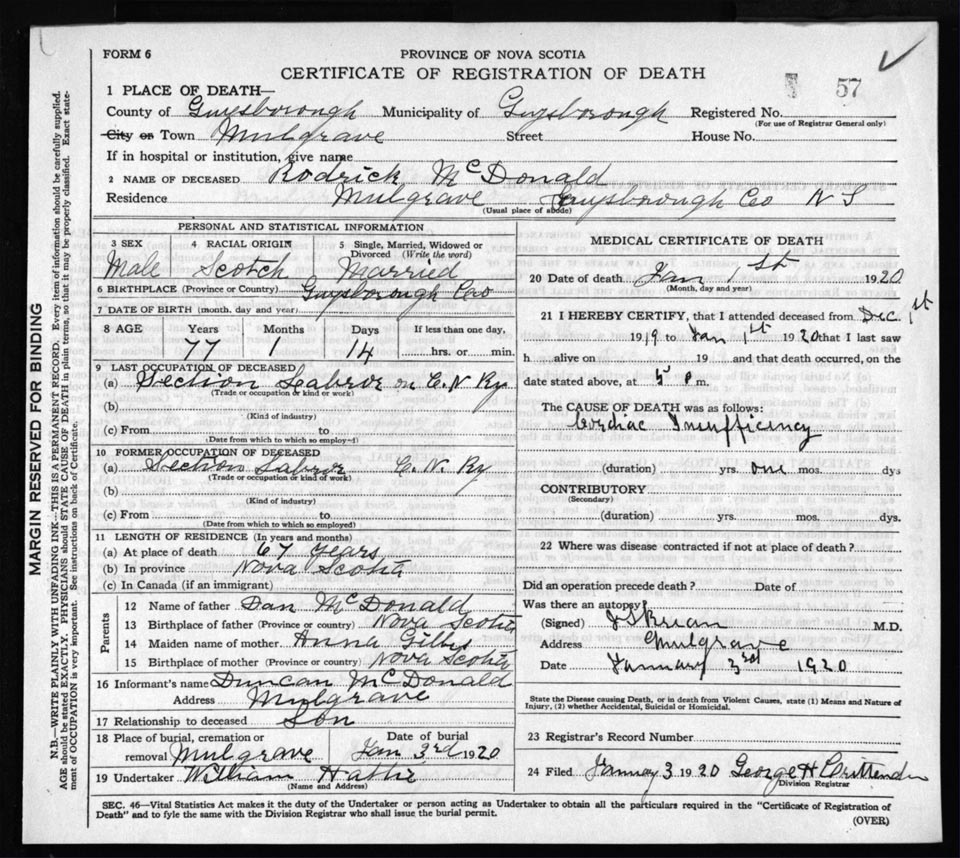 FORM 6
PROVINCE OF NOVA SCOTIA
CERTIFICATE OF REGISTRATION OF DEATH
57
1 PLACE OF DEATH—
County of Guysborough Municipality of Guysborough Registered No.
(For use of Registrar General only)
City or Town Mulgrave Street House No.
If in hospital or institution, give name
2 NAME OF DECEASED Rodrick McDonald
Residence Mulgrave Guysborough Co N S
(Usual place of abode)
PERSONAL AND STATISTICAL INFORMATION
3 SEX 4 RACIAL ORIGIN 5 Single, Married, Widowed or Divorced (Write the word)
Male Scotch Married
6 BIRTHPLACE (Province or Country) Guysborough Co
7 DATE OF BIRTH (month, day and year)
8 AGE Years Months Days If less than one day,
77 1 14 hrs. or min.
9 LAST OCCUPATION OF DECEASED
(a) Section Labror on C. N Ry
(Trade or occupation or kind of work)
(b)
(Kind of industry)
(c) From to
(Date from which to which so employed)
10 FORMER OCCUPATION OF DECEASED
(a) Section Labror C. N. Ry
(Trade or occupation or kind of work)
(b)
(Kind of industry)
(c) From to
(Date from which to which so employed)
11 LENGTH OF RESIDENCE (In years and months)
(a) At place of death 67 years
(b) In province Nova Scotia
(c) In Canada (if an immigrant)
Parents
12 Name of father Dan McDonald
13 Birthplace of father (Province or country) Nova Scotia
14 Maiden name of mother Anna Gillis
15 Birthplace of mother (Province or country) Nova Scotia
16 Informant's name Duncan McDonald
Address Mulgrave
17 Relationship to deceased Son
18 Place of burial, cremation or removal Mulgrave Date of burial Jan 3rd 1920
19 Undertaker William Hattie
(Name and Address)
MEDICAL CERTIFICATE OF DEATH
20 Date of death Jan 1st 1920
(Month, day and year)
21 I HEREBY CERTIFY, that I attended deceased from Dec. 1st
1919 to Jan 1st 1920 that I last saw
h alive on 19 and that death occurred, on the
date stated above, at 5 p m.
The CAUSE OF DEATH was as follows:
Cordiac Insufficency
(duration) yrs. one mos. dys
CONTRIBUTORY
(Secondary)
(duration) yrs. mos. dys.
22 Where was disease contracted if not at place of death?
Did an operation precede death? Date of
Was there an autopsy?
(Signed) M.D.
Address Mulgrave
Date January 3rd 1920
State the Disease causing Death, or in death from Violent Causes, state (1) Means and Nature of
Injury, (2) whether Accidental, Suicidal or Homicidal.
23 Registrar's Record Number
24 Filed January 3 1920 George H Crittenden
Division Registrar
SEC. 46—Vital Statistics Act makes it the duty of the Undertaker or person acting as Undertaker to obtain all the particulars required in the "Certificate of Registration of
Death" and to fyle the same with the Division Registrar who shall issue the burial permit.
(OVER)
MARGIN RESERVED FOR BINDING
N.B.—WRITE PLAINLY WITH UNFADING INK—THIS IS A PERMANENT RECORD. Every item of information should be carefully supplied.
AGE should be stated EXACTLY. PHYSICIANS should STATE CAUSE OF DEATH in plain terms, so that it may be properly classified. Exact statement
of OCCUPATION is very important. See instructions on back of Certificate.